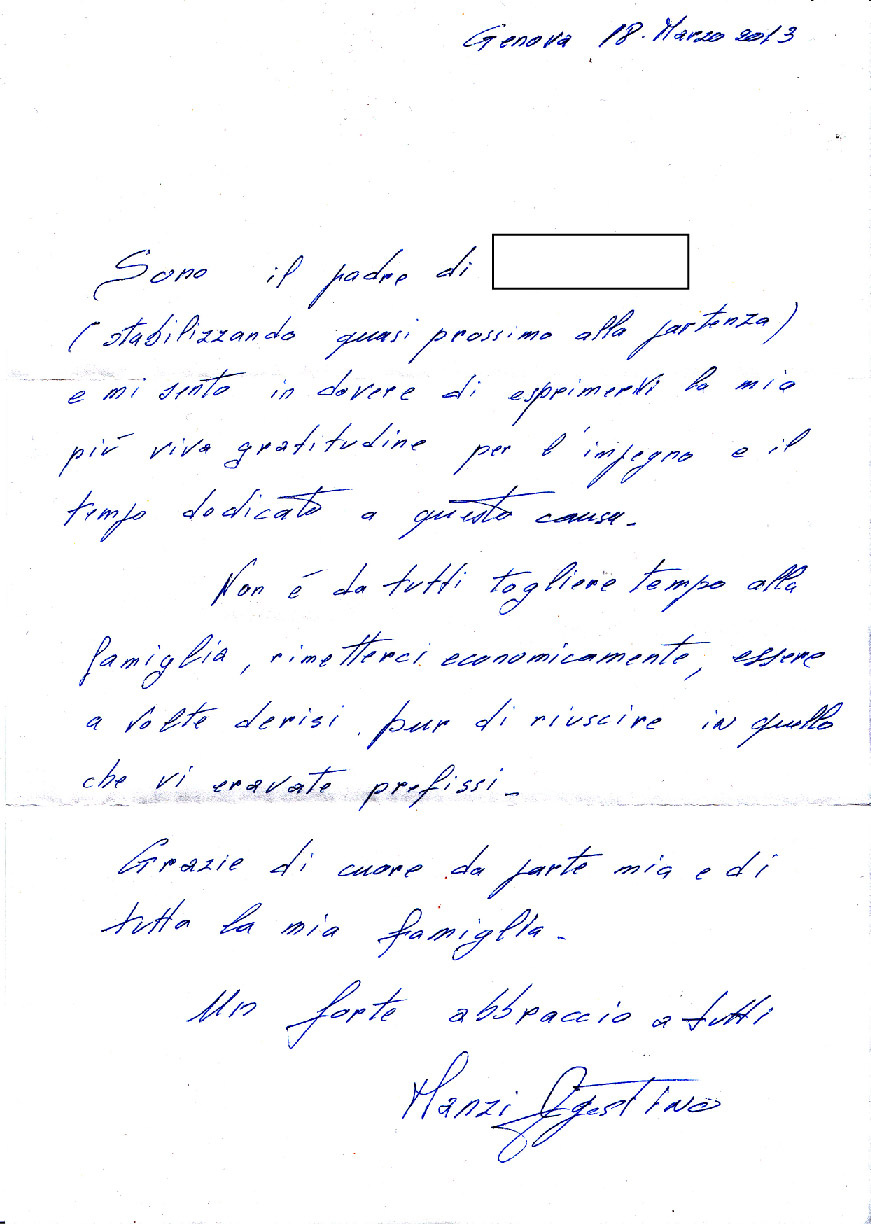 Genova 18. Marzo 2013
Sono il padre di
(stabilizzando quasi prossimo alla partenza)
e mi sento in dovere di esprimervi la mia
più viva gratitudine per l'impegno e il
tempo dedicato a questa causa.
Non é da tutti togliere tempo alla
famiglia, rimetterci economicamente, essere
a volte derisi, pur di riuscire in quello
che vi eravate prefissi.
Grazie di cuore da parte mia e di
tutta la mia famiglia.
Un forte abbraccio a tutti
Manzi Agostino